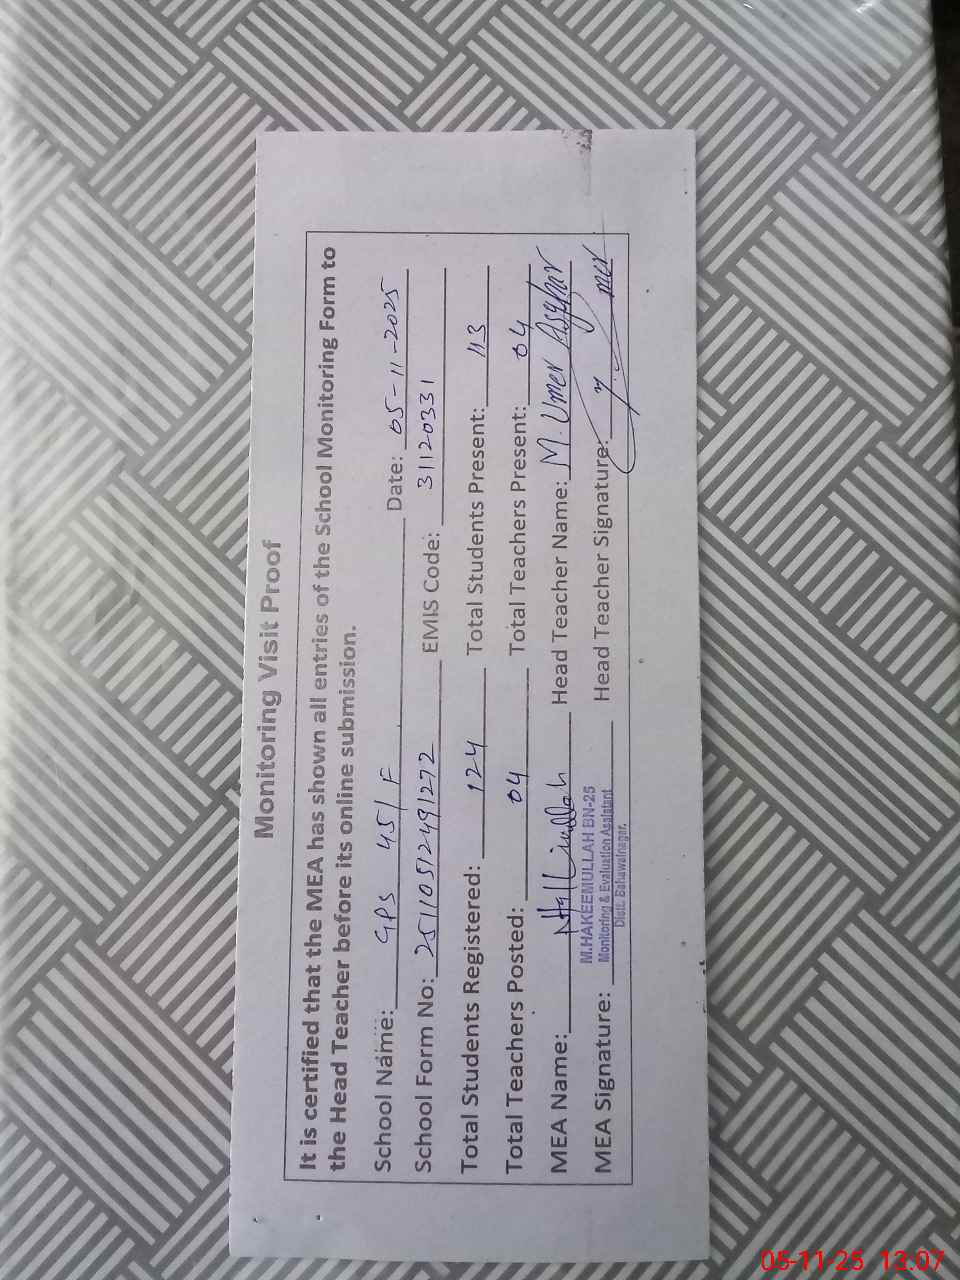 Monitoring Visit Proof
It is certified that the MEA has shown all entries of the School Monitoring Form to
the Head Teacher before its online submission.
School Name: GPS 45/F Date: 05-11-2025
School Form No: 25110512491272 EMIS Code: 31120331
Total Students Registered: 124 Total Students Present: 113
Total Teachers Posted: 04 Total Teachers Present: 04
MEA Name: Head Teacher Name: M. Umer Asghar
M.HAKEEMULLAH BN-25
MEA Signature: Monitoring & Evaluation Assistant Head Teacher Signature:
Distt. Bahawalnagar.
05-11-25 13:07